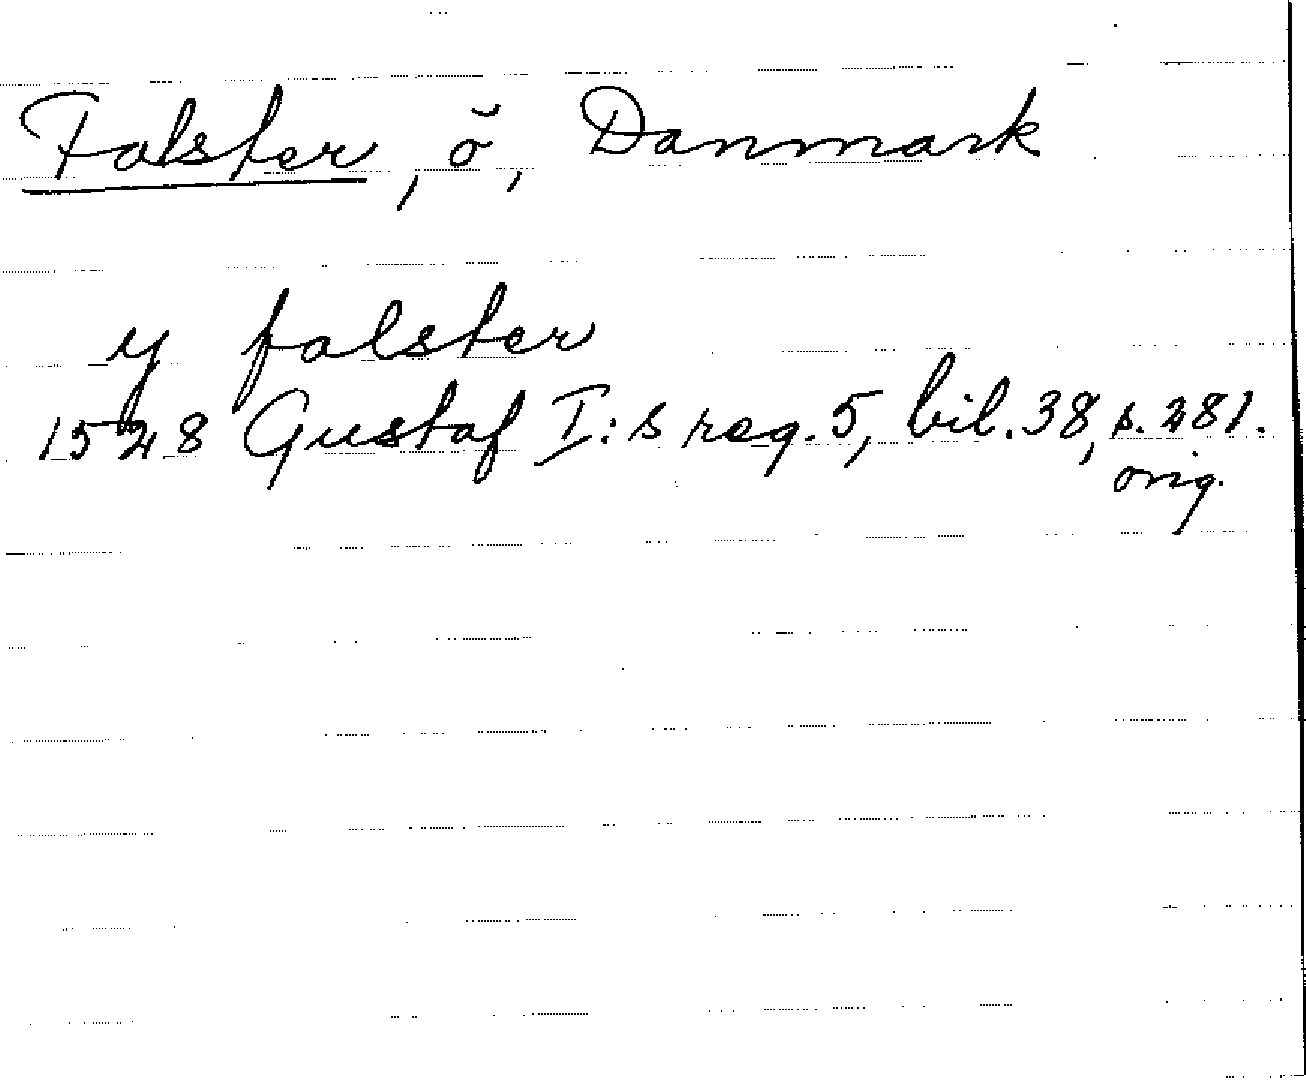 Falster, ö, Danmark
y falster
1528 Gustaf I:s reg. 5, bil. 38, s. 281.
orig.